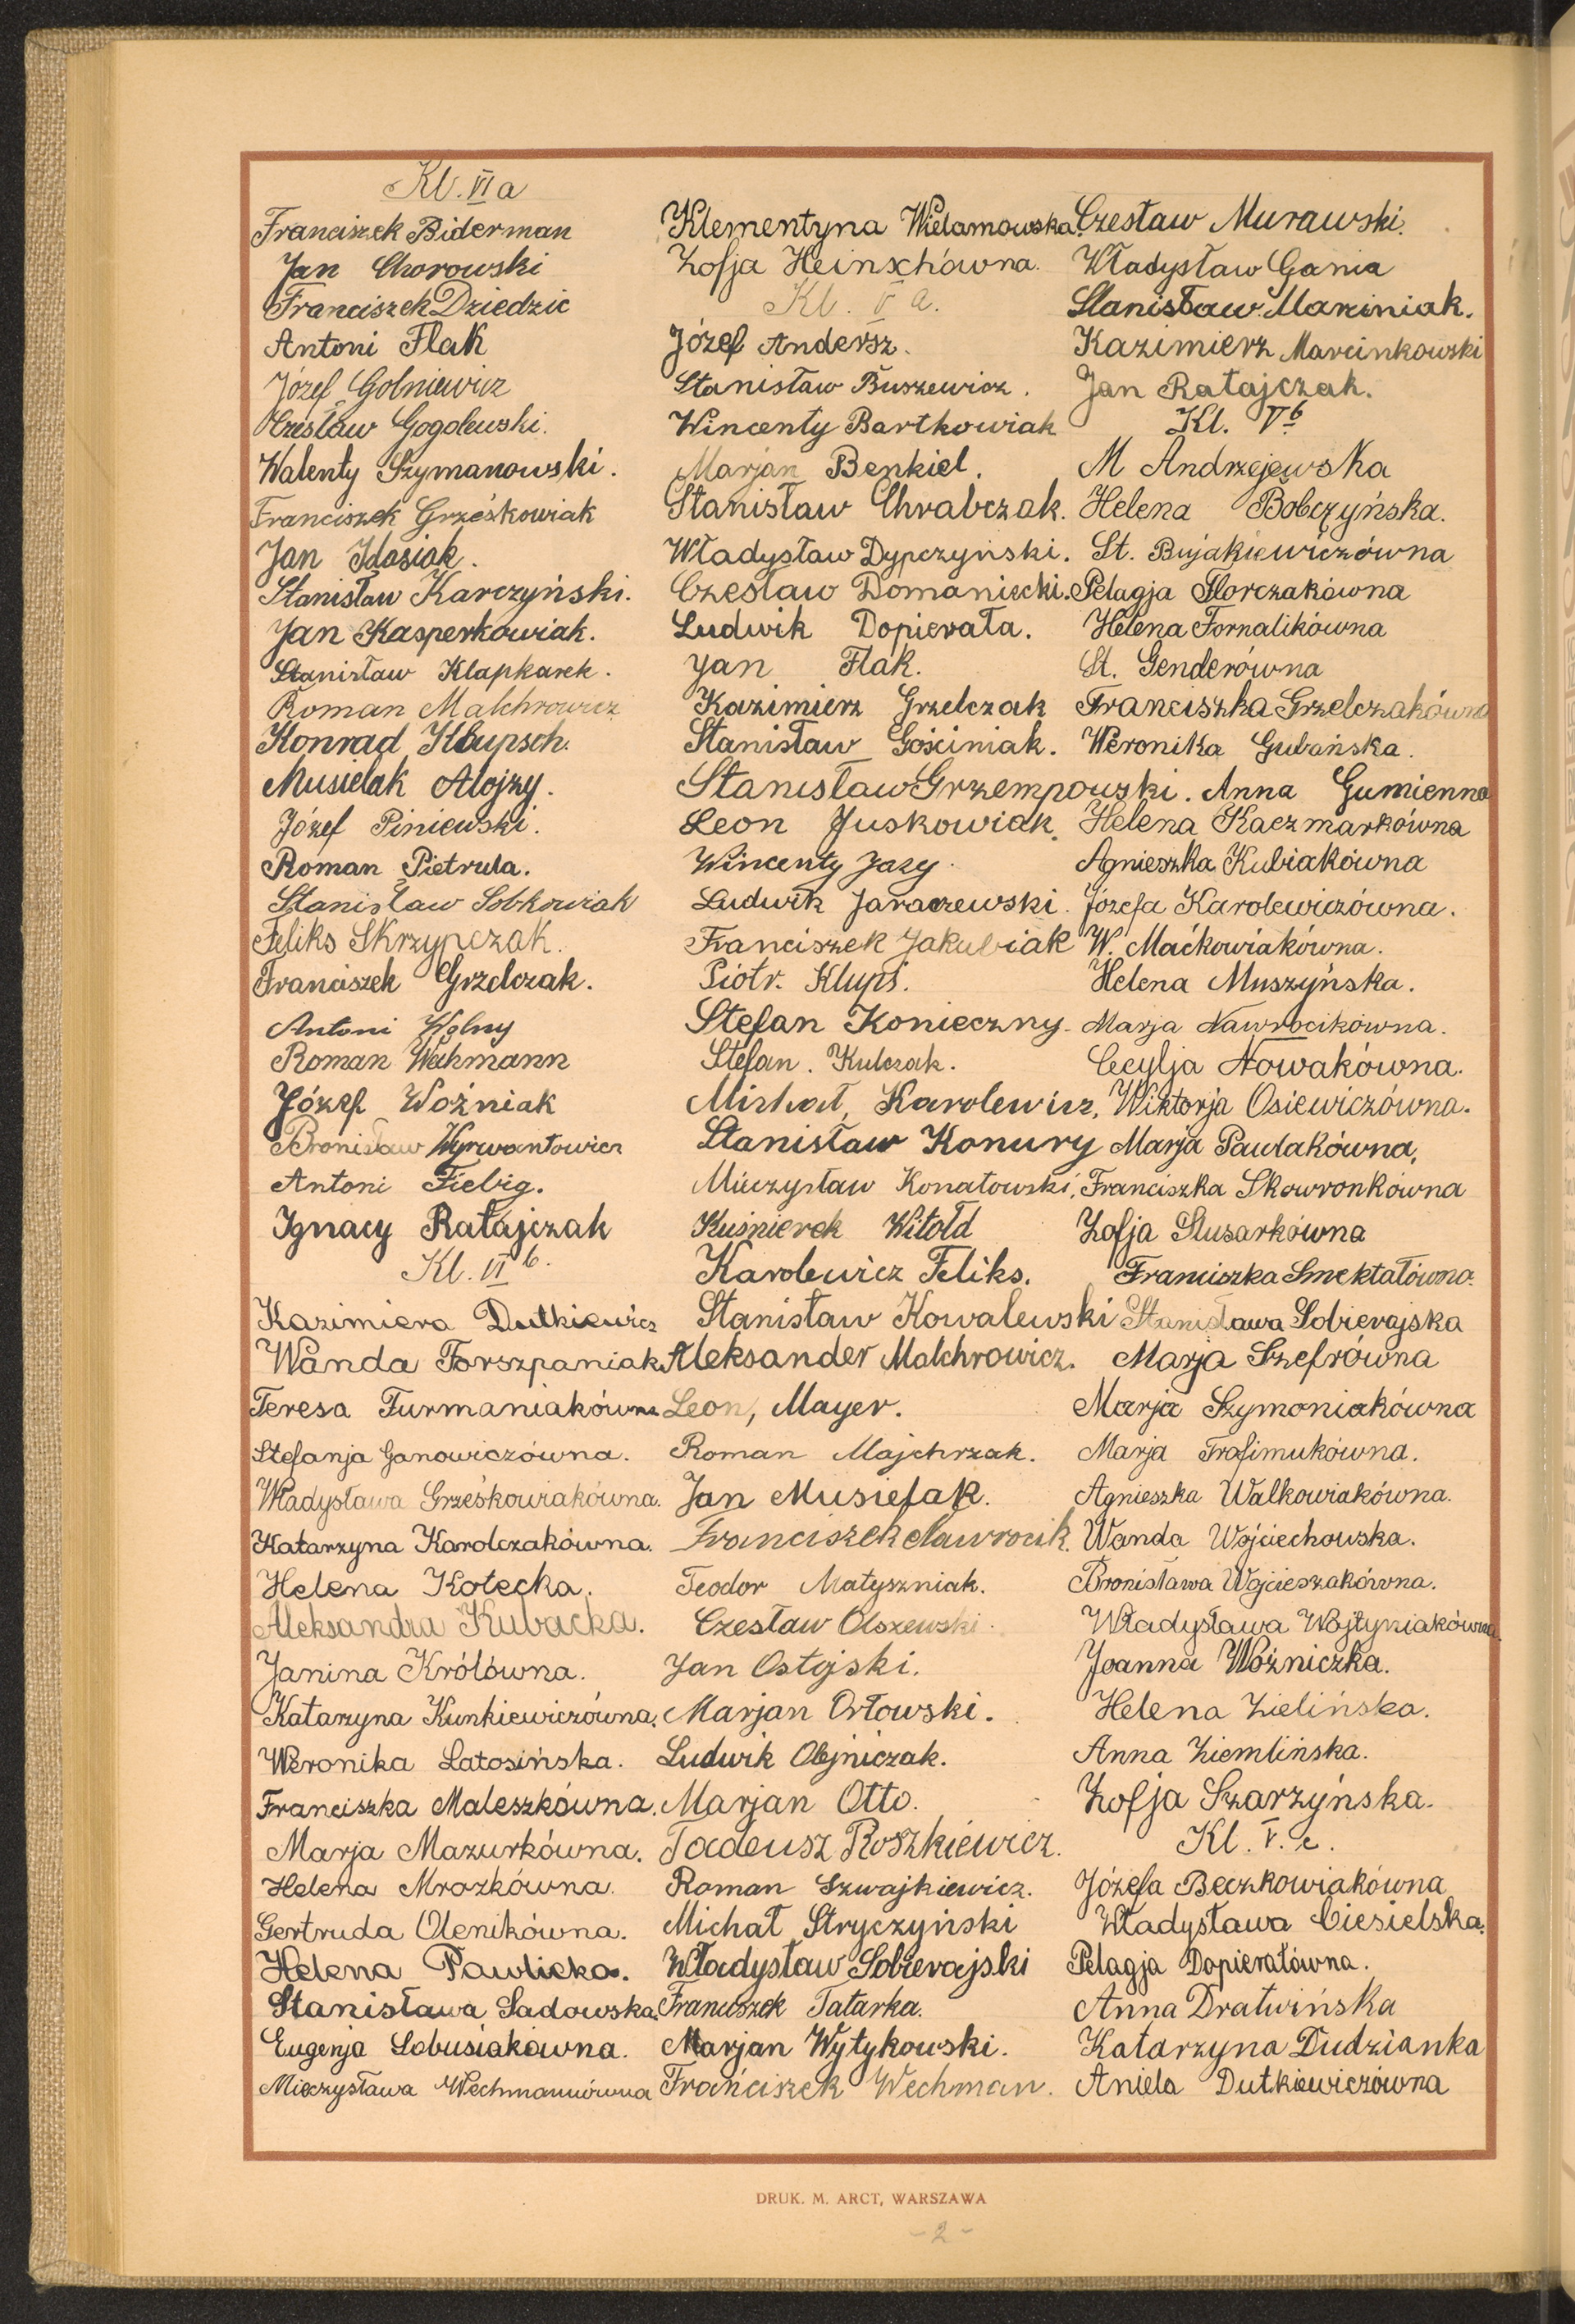 Kl. VI a
Franciszek Biderman
Jan Chorowski
Franciszek Dziedzic
Antoni Flak
Józef Golniewicz
Czesław Gogolewski.
Walenty Szymanowski.
Franciszek Grześkowiak
Jan Idasiak.
Stanisław Karczyński.
Jan Kasperkowiak.
Stanisław Klapkarek.
Roman Malchrowicz
Konrad Klupsch.
Musielak Alojzy.
Józef Piniewski.
Roman Pietrula.
Stanisław Sobkowiak
Feliks Skrzypczak.
Franciszek Grzelczak.
Antoni Wolny
Roman Wechmann
Józef Woźniak
Bronisław Wyrwantowicz
Antoni Fiebig.
Ignacy Ratajczak
Kl. VI b.
Kazimiera Dutkiewicz
Wanda Forszpaniak
Teresa Furmaniakówna
Stefanja Janowiczówna.
Władysława Grześkowiakówna.
Katarzyna Karolczakówna.
Helena Kotecka.
Aleksandra Kubacka.
Janina Królówna.
Katarzyna Kunkiewiczówna.
Weronika Latosińska.
Franciszka Maleszkówna.
Marja Mazurkówna.
Helena Mrozkówna.
Gertruda Olenikówna.
Helena Pawlicka.
Stanisława Sadowska.
Eugenja Sobusiakówna.
Mieczysława Wechmannówna
Klementyna Wielamowska.
Zofja Heinschówna.
Kl. V a.
Józef Andersz.
Stanisław Buszewicz.
Wincenty Bartkowiak
Marjan Benkiel.
Stanisław Chrabczak.
Władysław Dypczyński.
Czesław Domaniecki.
Ludwik Dopierała.
Jan Flak.
Kazimierz Grzelczak
Stanisław Gościniak.
Stanisław Grzempowski.
Leon Juskowiak.
Wincenty Jazy.
Ludwik Jaraczewski.
Franciszek Jakubiak
Piotr. Klupś.
Stefan Konieczny.
Stefan. Kulczak.
Michał, Karolewicz.
Stanisław Konury
Mieczysław Konatowski.
Kuśnierek Witold
Karolewicz Feliks.
Stanisław Kowalewski
Aleksander Malchrowicz.
Leon, Mayer.
Roman Majchrzak.
Jan Musielak.
Franciszek Nawrocik.
Teodor Matyszniak.
Czesław Olszewski.
Jan Ostojski.
Marjan Orłowski.
Ludwik Olejniczak.
Marjan Otto.
Tadeusz Roszkiewicz.
Roman Szwajkiewicz.
Michał Stryczyński
Władysław Sobierajski
Franciszek Tatarka.
Marjan Wytykowski.
Franciszek Wechman.
Czesław Murawski.
Władysław Gania
Stanisław Marciniak.
Kazimierz Marcinkowski
Jan Ratajczak.
Kl. V b
M Andrzejewska
Helena Bobczyńska.
St. Bujakiewiczówna
Pelagja Florczakówna
Helena Fornalikówna
St. Genderówna
Franciszka Grzelczakówna
Weronika Gubańska.
Anna Gumienna
Helena Kaczmarkówna
Agnieszka Kubiakówna
Józefa Karolewiczówna.
W. Maćkowiakówna.
Helena Muszyńska.
Marja Nawrocikówna.
Cecylja Nowakówna.
Wiktorja Osiewiczówna.
Marja Pawlakówna.
Franciszka Skowronkówna
Zofja Ślusarkówna
Franciszka Smektałówna.
Stanisława Sobierajska
Marja Szefrówna
Marja Szymoniakówna
Marja Trafimukówna.
Agnieszka Walkowiakówna.
Wanda Wojciechowska.
Bronisława Wojcieszakówna.
Władysława Wojtyniakówna.
Joanna Woźniczka.
Helena Zielińska.
Anna Ziemlińska.
Zofja Szarzyńska.
Kl. V. c.
Józefa Beczkowiakówna
Władysława Ciesielska.
Pelagja Dopierałówna.
Anna Dratwińska
Katarzyna Dudzianka
Aniela Dutkiewiczówna
DRUK. M. ARCT, WARSZAWA
- 2 -